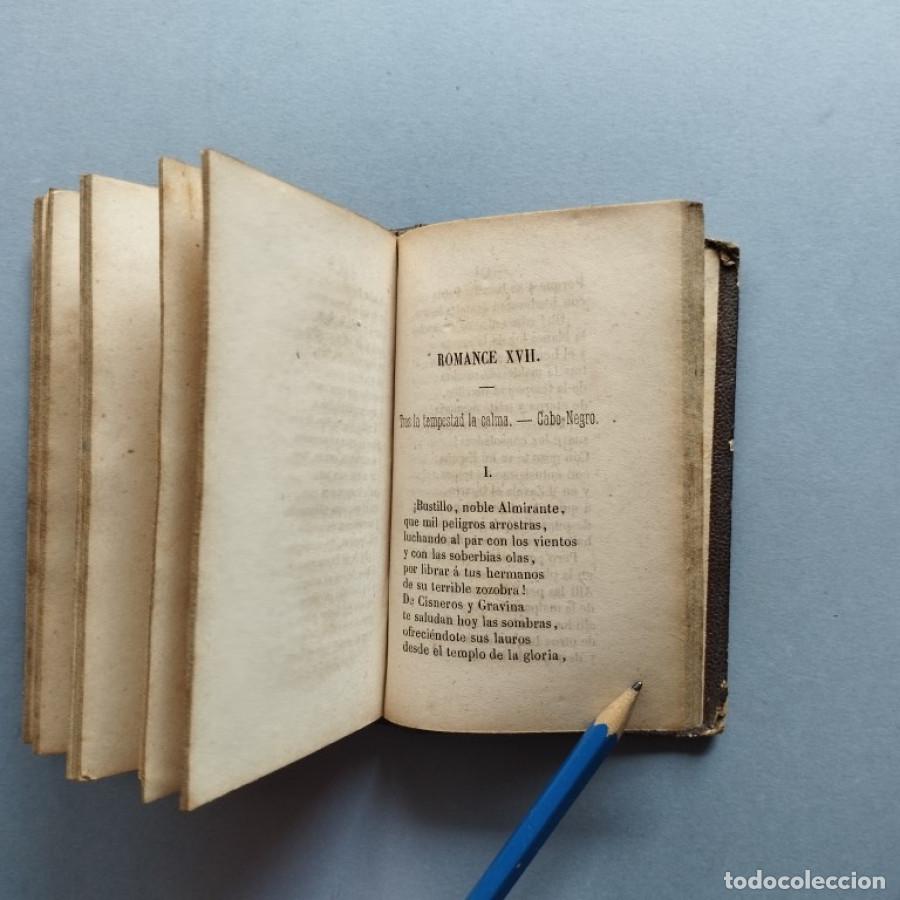 ROMANCE XVII.
Tras la tempestad la calma. — Cabo-Negro.
I.
¡Bustillo, noble Almirante,
que mil peligros arrostras,
luchando al par con los vientos
y con las soberbias olas,
por librar á tus hermanos
de su terrible zozobra!
De Cisneros y Gravina
te saludan hoy las sombras,
ofreciéndote sus lauros
desde el templo de la gloria,
todocoleccion